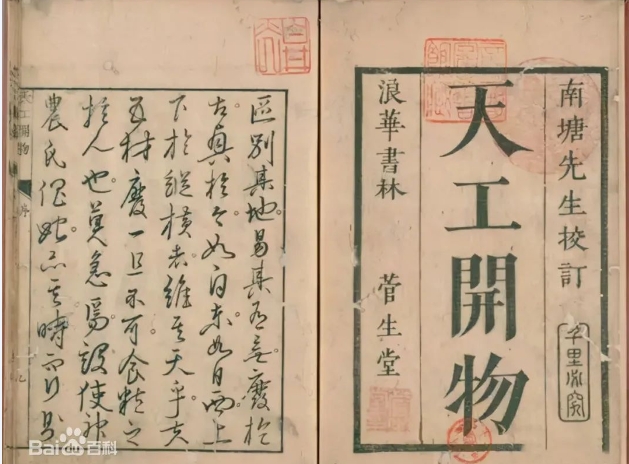 南塘先生校訂
千里必究
天工開物
浪華書林 菅生堂
區別其地易其有無廢於
古興於今如自東如自西上
下於縱橫者維天乎夫
五材廢一且不可食粒之
於人也莫急焉設使神
農氏 時而
天工開物 序
Baidu百科